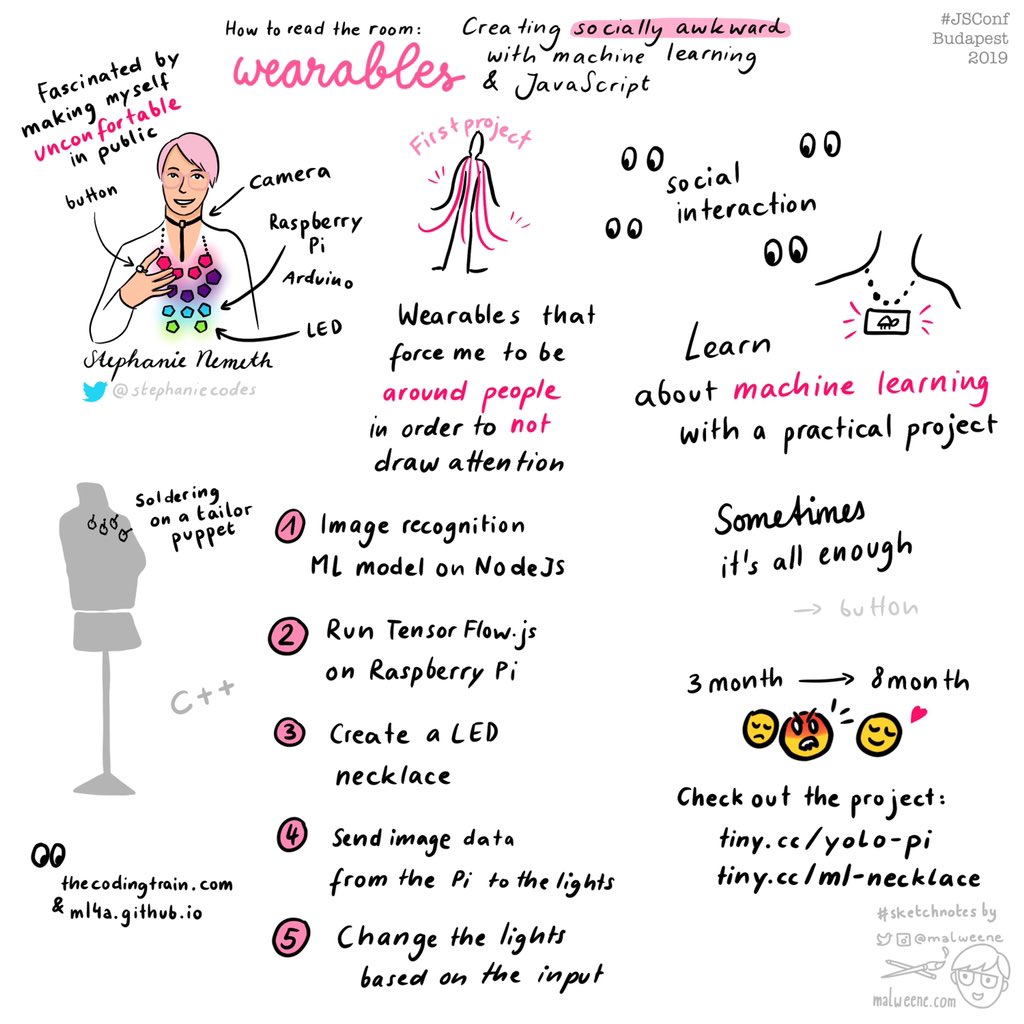 How to read the room:
wearables
Creating socially awkward
with machine learning
& JavaScript
#JSConf
Budapest
2019
Fascinated by
making myself
unconfortable
in public
button
camera
Raspberry
Pi
Arduino
LED
Stephanie Nemeth
@stephaniecodes
First project
Wearables that
force me to be
around people
in order to not
draw attention
social
interaction
Learn
about machine learning
with a practical project
Soldering
on a tailor
puppet
C++
1 Image recognition
ML model on NodeJs
2 Run TensorFlow.js
on Raspberry Pi
3 Create a LED
necklace
4 Send image data
from the Pi to the lights
5 Change the lights
based on the input
Sometimes
it's all enough
→ button
3 month → 8 month
Check out the project:
tiny.cc/yolo-pi
tiny.cc/ml-necklace
thecodingtrain.com
& ml4a.github.io
#sketchnotes by
@malweene
malweene.com